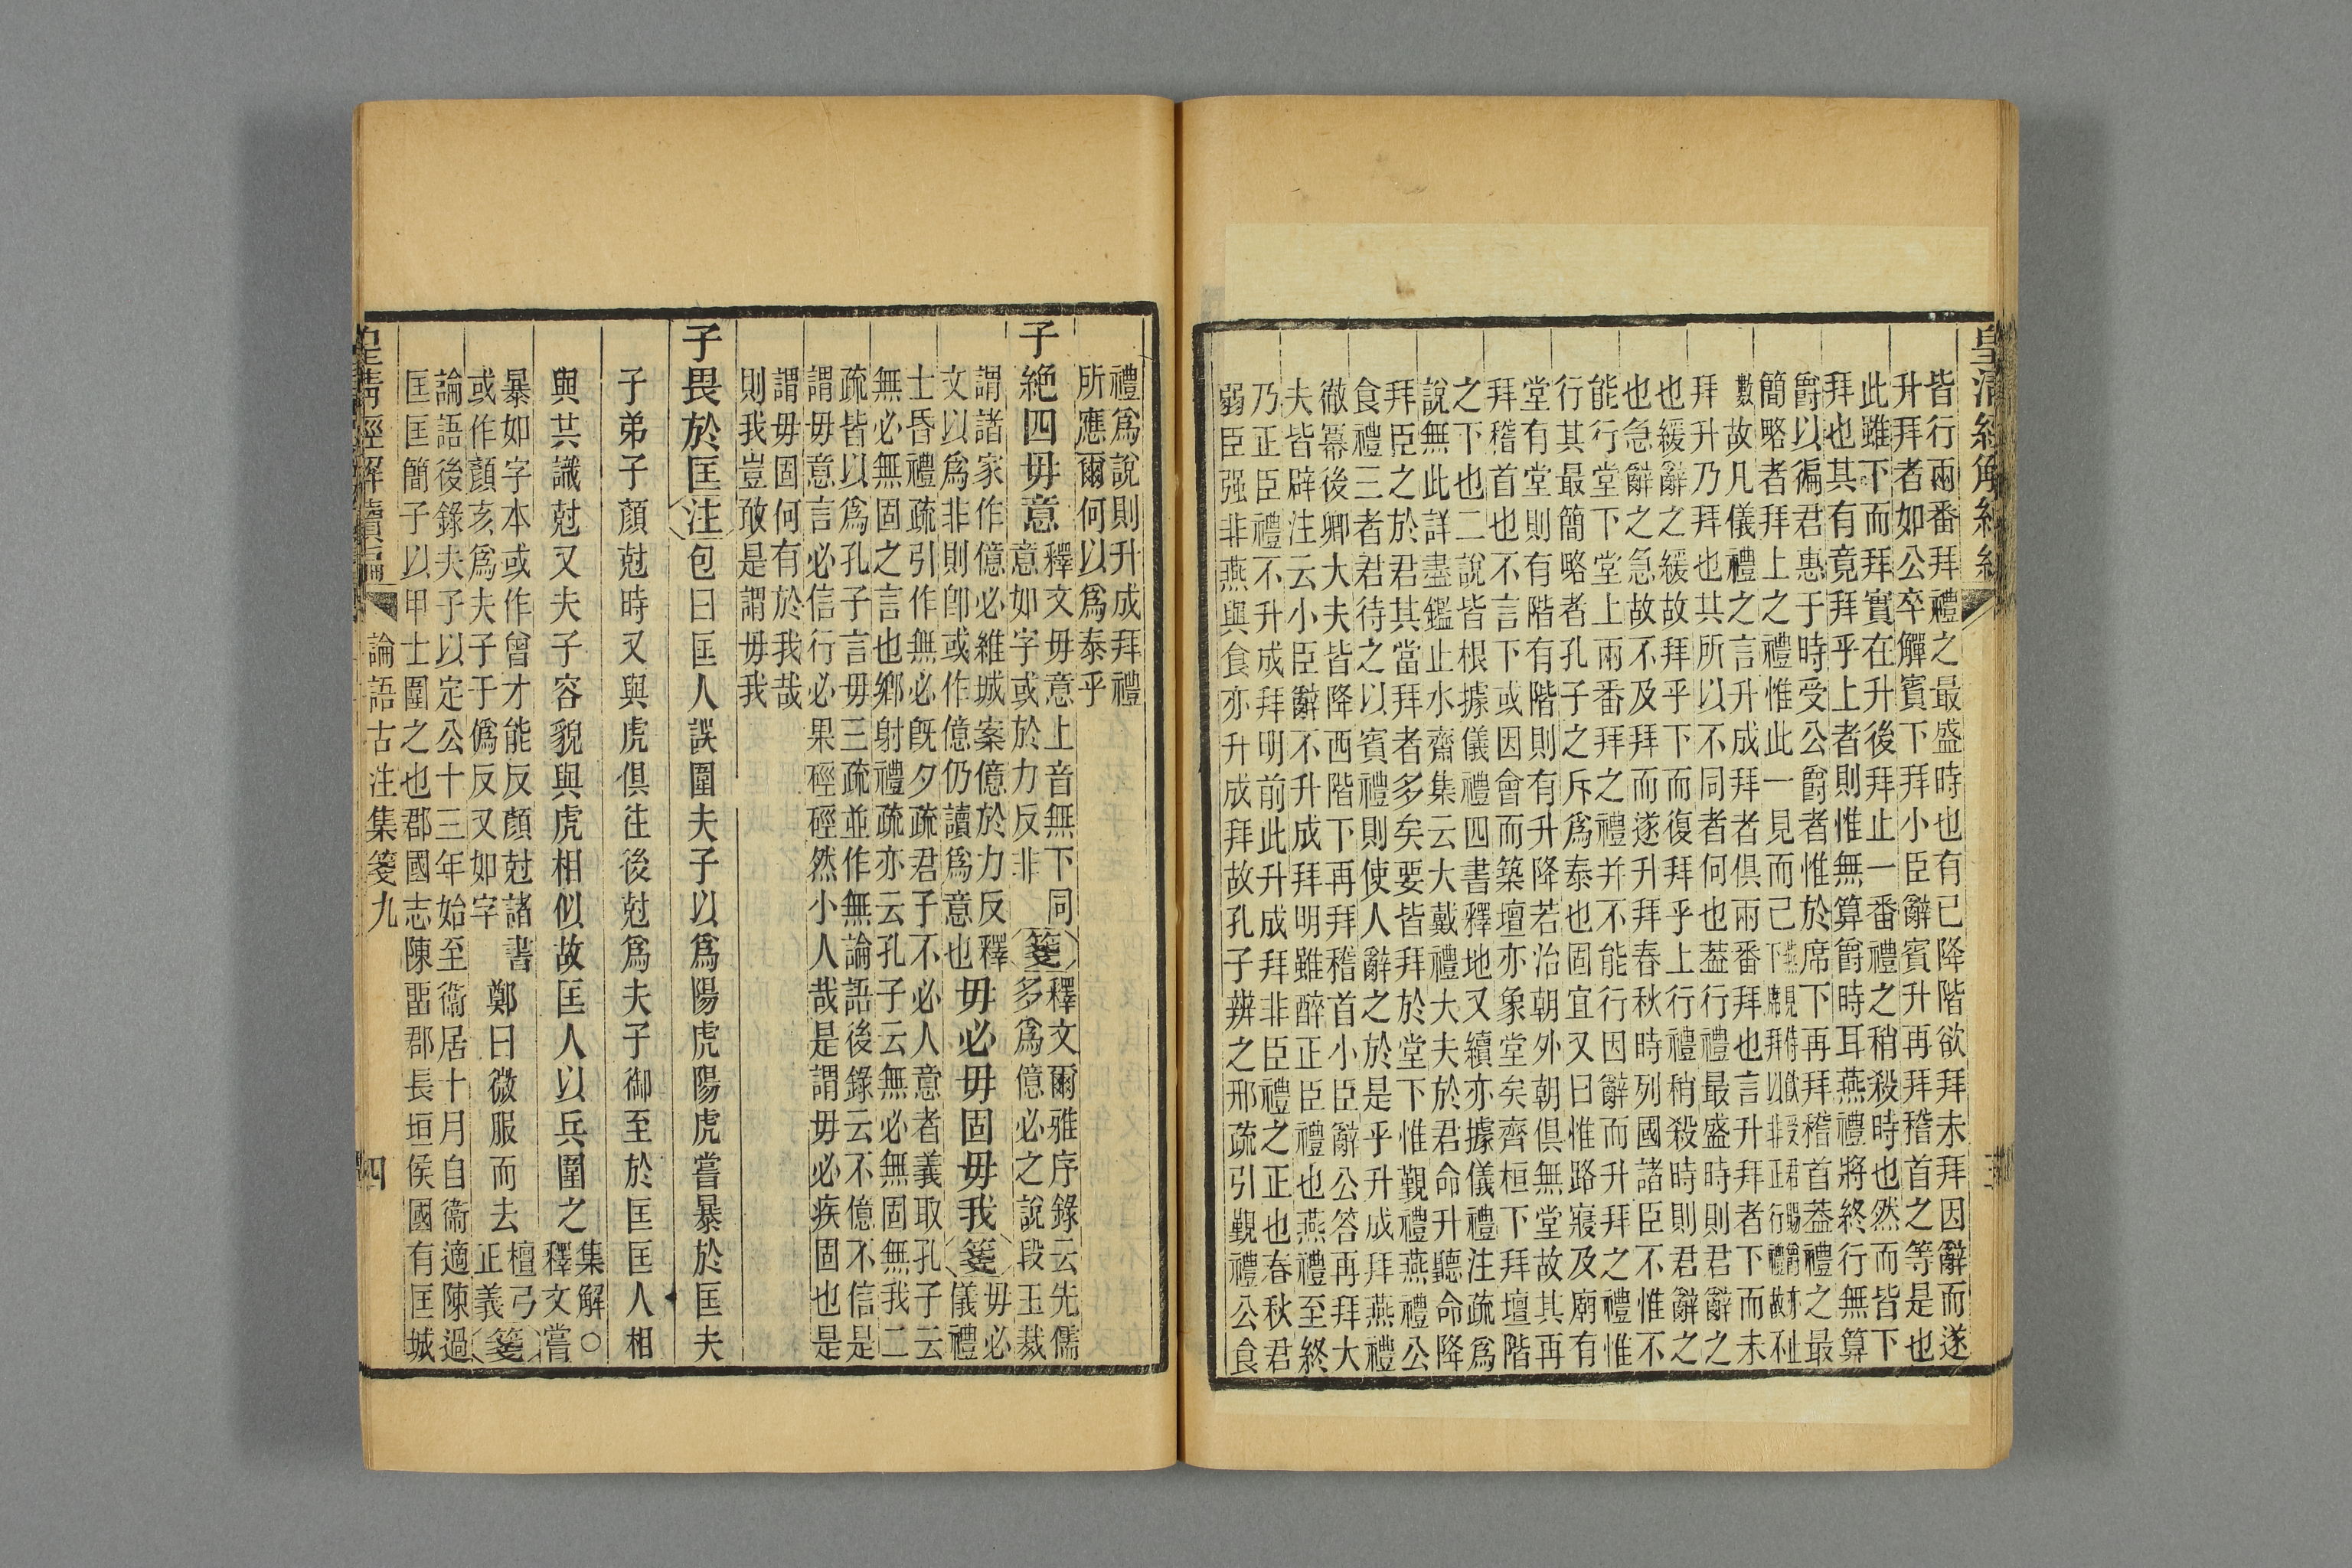 皇清經解續編　三
皆行兩番拜禮之最盛時也有已降階欲拜未拜因辭而遂
升拜者如公卒觶賓下拜小臣辭賓升再拜稽首之等是也
此雖下而拜實在升後拜止一番禮之稍殺時也然而皆下
拜也其有竟拜乎上者則惟無算爵時耳燕禮將終行無算
爵以徧君惠于時受公爵者惟於席下再拜稽首葢禮之最
簡略者拜上之禮惟此一見而已
燕見侍飲受君賜爵亦
下席拜以非正行禮故不
數故凡儀禮之言升成拜者俱兩番拜也言升拜者下而未
拜升乃拜也其所以不同者何也葢行禮最盛時則君辭之
也緩辭之緩故拜乎下而復拜乎上行禮稍殺時則君辭之
也急辭之急故不及拜而遂升拜春秋時列國諸臣不惟不
能行堂下堂上兩番拜之禮并不能行因辭而升拜之禮惟
行其最簡略者孔子之斥爲泰也固宜又曰惟路寢及廟有
堂有堂則有階有階則有升降若治朝外朝俱無堂故其再
拜稽首也不言下或因會而築壇亦象堂矣齊桓下拜壇階
之下也二說皆根據儀禮四書釋地又續亦據儀禮注疏爲
說無此詳盡鑑止水齋集云大戴禮大夫於君命升聽命降
拜臣之於君其當拜者多矣要皆拜於堂下惟覲禮燕禮公
食禮三者君待之以賓禮則使人辭之於是乎升成拜燕禮
徹冪後卿大夫皆降西階下再拜稽首小臣辭公答再拜大
夫皆辟注云小臣辭不升成拜明雖醉正臣禮也燕禮至終
乃正臣禮不升成拜明前此升成拜非臣禮之正也春秋君
弱臣强非燕與食亦升成拜故孔子辨之邢疏引覲禮公食
禮爲說則升成拜禮
所應爾何以爲泰乎
子絶四毋意
釋文毋意上音無下同
意如字或於力反非
箋
釋文爾雅序錄云先儒
多爲億必之說段玉裁
謂諸家作億必維城案億於力反釋
文以爲非則卽或作億仍讀爲意也
毋必毋固毋我箋
毋必
儀禮
士昏禮疏引作無必旣夕疏君子不必人意者義取孔子云
無必無固之言也鄉射禮疏亦云孔子云無必無固無我二
疏皆以爲孔子言毋三疏並作無論語後錄云不億不信是
謂毋意言必信行必果硜硜然小人哉是謂毋必疾固也是
謂毋固何有於我哉
則我豈敢是謂毋我
子畏於匡注包曰匡人誤圍夫子以爲陽虎陽虎嘗暴於匡夫
子弟子顏尅時又與虎俱往後尅爲夫子御至於匡匡人相
與共識尅又夫子容貌與虎相似故匡人以兵圍之
集解○
釋文嘗
暴如字本或作曾才能反顏尅諸書
或作顏亥爲夫子于僞反又如字
鄭曰微服而去
檀弓
正義
箋
論語後錄夫子以定公十三年始至衞居十月自衞適陳過
匡匡簡子以甲士圍之也郡國志陳畱郡長垣侯國有匡城
皇清經解續編　論語古注集箋九　四